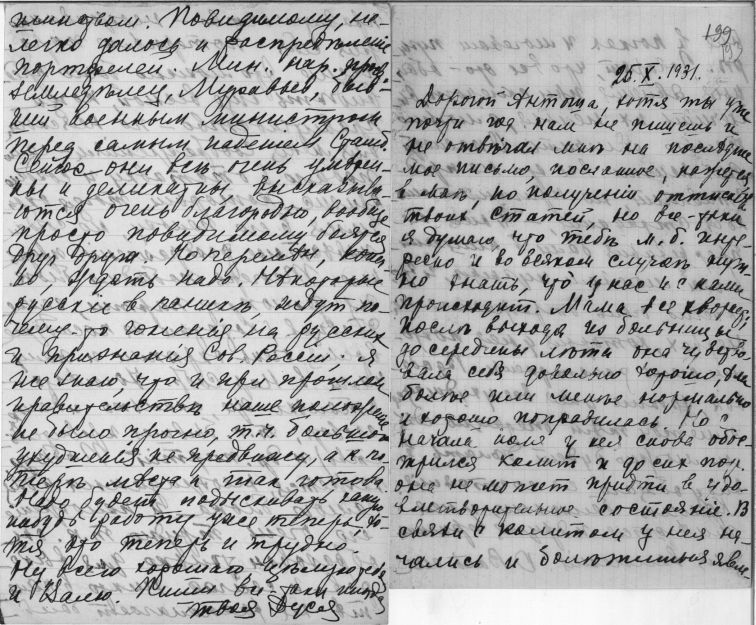 Повидимому, не-
легко далось и распредѣленіе
портфелей. Мин. нар. пр.
земледѣлец, Муравьев, быв-
ший военным министром
перед самым падением Стамб.
Сейчас они всѣ очень умѣрен-
ны и деликатны, высказыва-
ются очень благородно, вообще
просто повидимому боятся
друг друга. Но перемѣн конеч-
но, ждать надо. Нѣкоторые
русскіе в паникѣ, ждут по-
чему то гоненія на русских
и признанія Сов. Россіи. Я
же знаю, что и при прошлом
правительствѣ наше положеніе
не было прочно, т.ч. большого
ухудшенія не предвижу, а к по-
терѣ мѣста и так готова.
Надо будет подыскивать какую
нибудь работу уже теперь, хо-
тя это теперь и трудно.
Ну, всего хорошаго, цѣлую тебя
и Валю. Пиши все-таки иногда
твоя Дуся
199
25.X.1931.
Дорогой Антоша, хотя ты уже
почти год нам не пишешь и
не отвѣчал мнѣ на послѣднее
мое письмо, посланное, кажется
в маѣ, по полученіи оттисков
твоих статей, но все-таки
я думаю, что тебѣ м.б. инте-
ресно и во всяком случаѣ нуж-
но знать, что у нас и с нами
происходит. Мама все хворает.
послѣ выхода из больницы
до середины лѣта она чувство-
вала себя довольно хорошо, ѣла
болѣе или менѣе нормально
и хорошо поправилась. Но с
начала іюля у нея снова обос-
трился колит и до сих пор
она не может придти в удо-
влетворительное состояніе. В
связи с колитом у нея на-
чались и болѣзненныя явл.